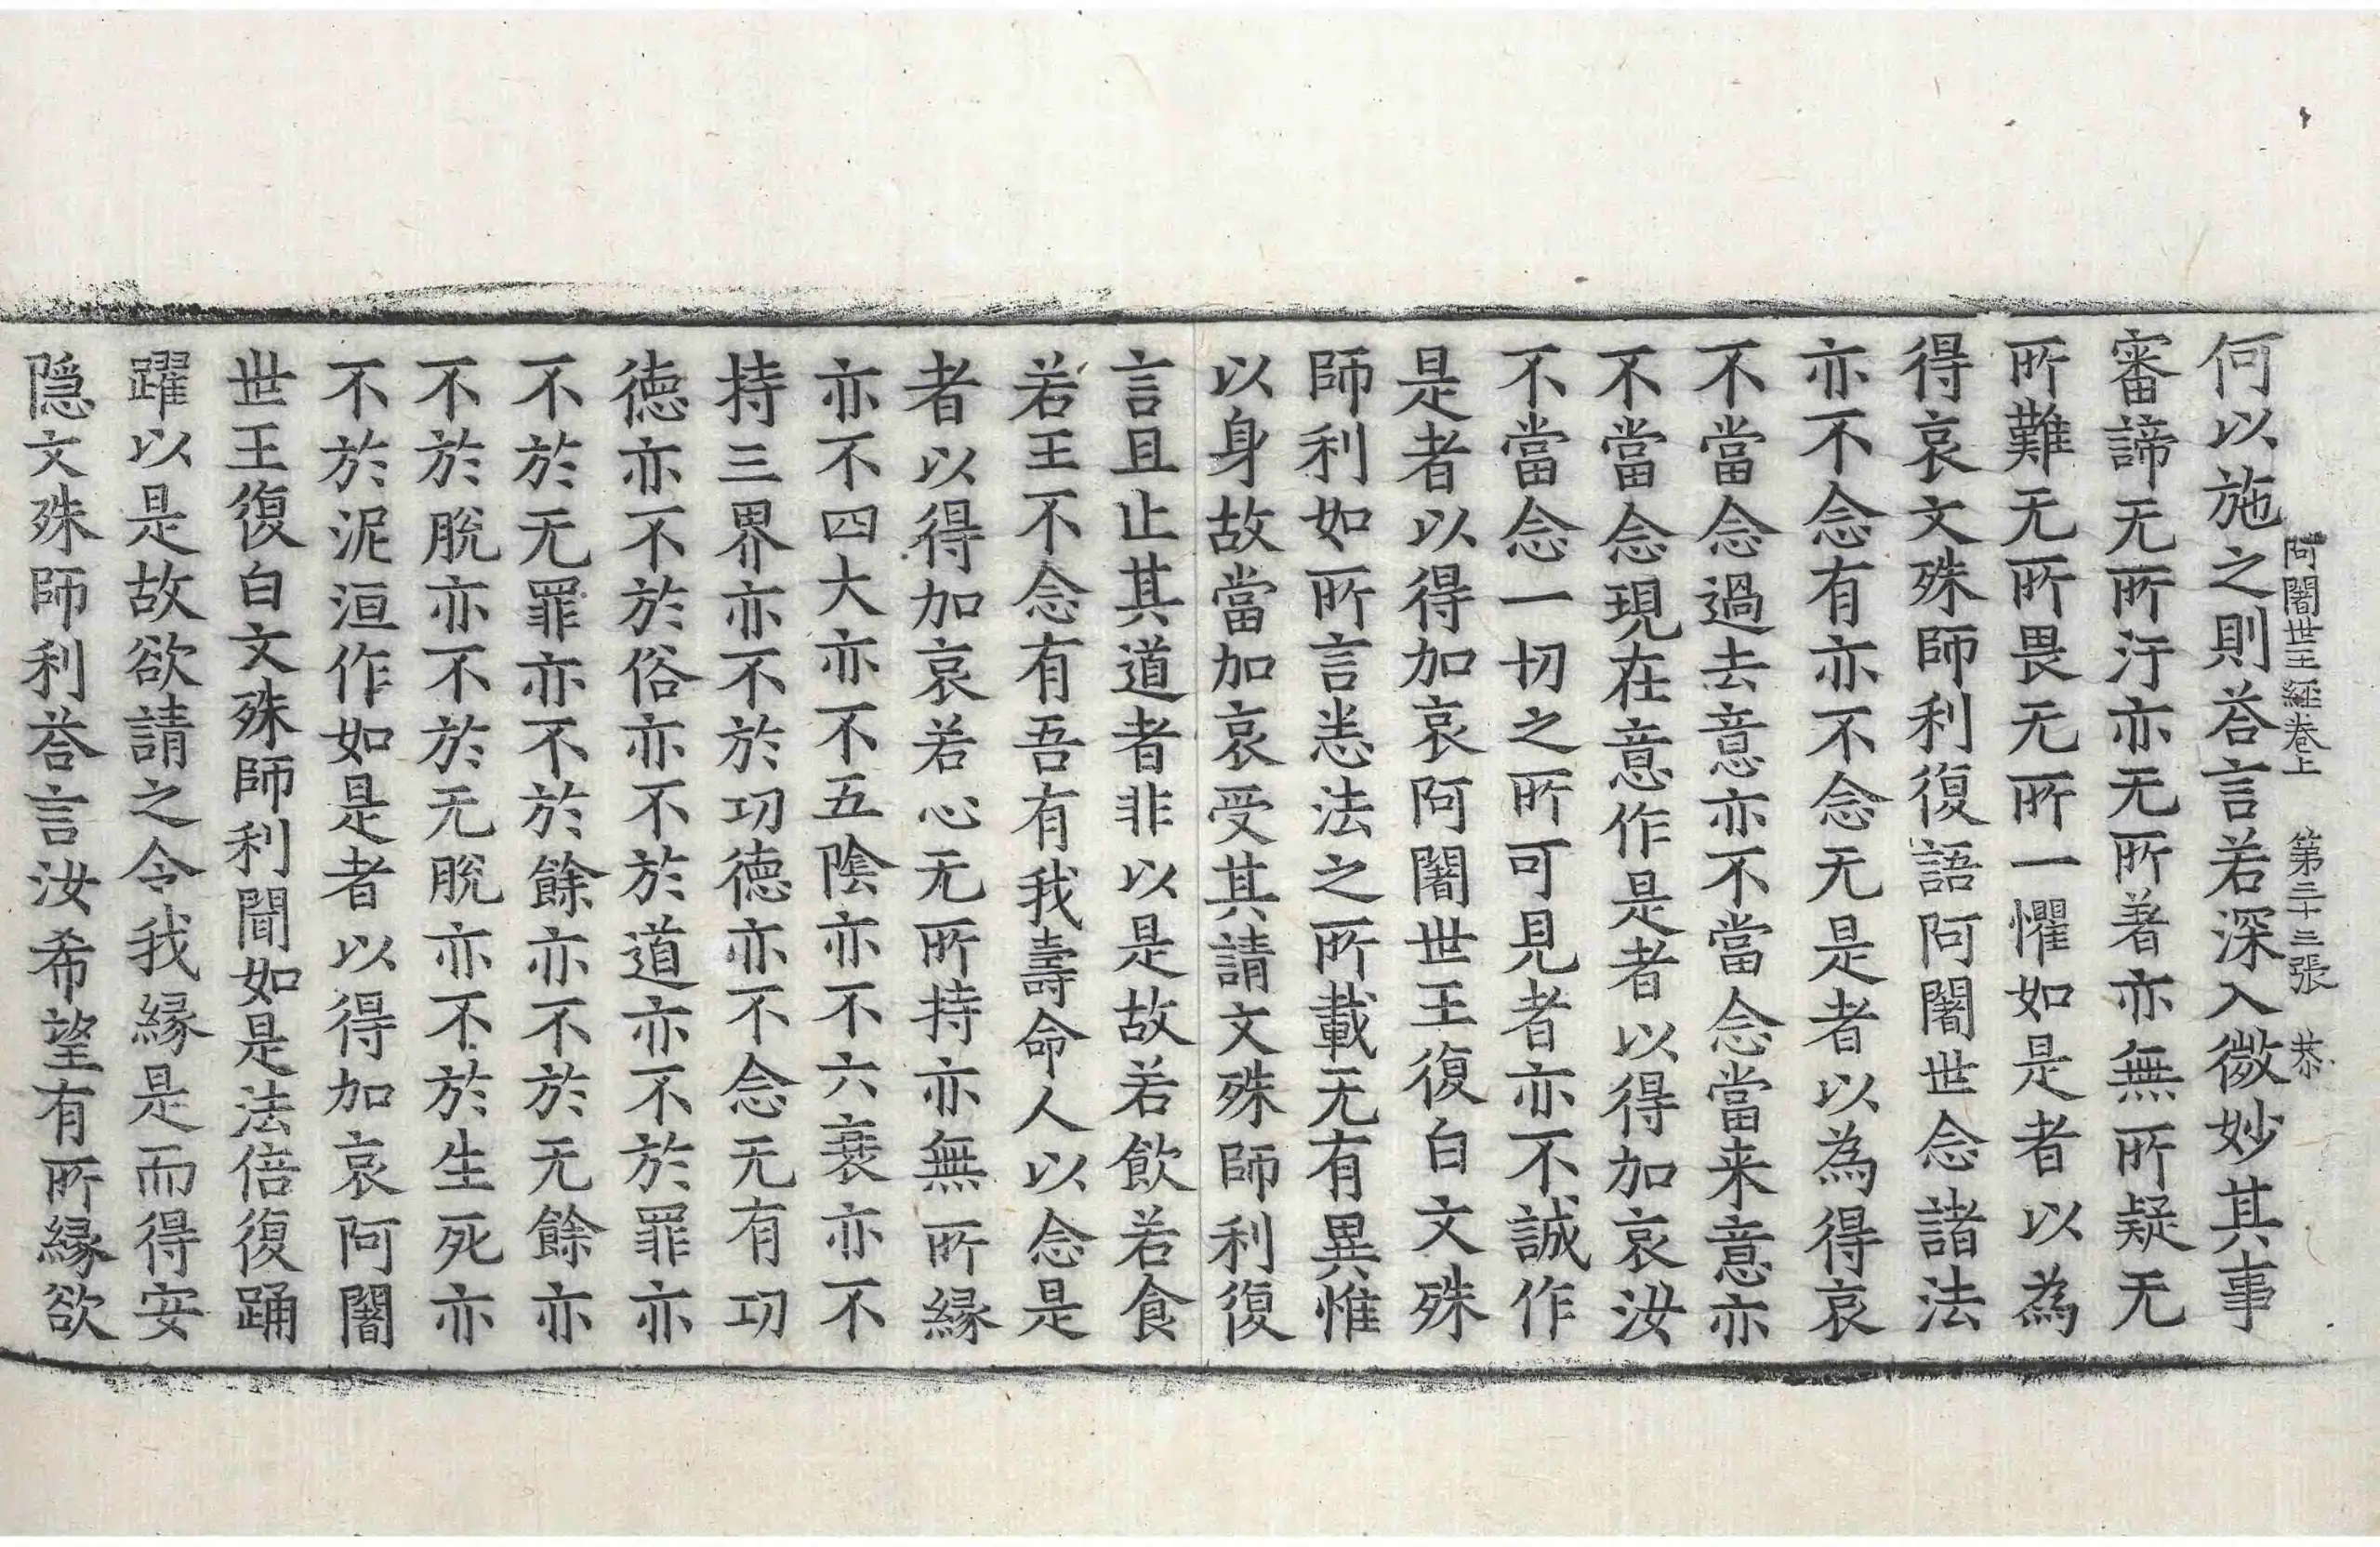 阿闍世王經卷上 第三十三張 恭
何以施之則荅言若深入微妙其事
審諦无所汙亦无所著亦無所疑无
所難无所畏无所一懼如是者以為
得哀文殊師利復語阿闍世念諸法
亦不念有亦不念无是者以為得哀
不當念過去意亦不當念當来意亦
不當念現在意作是者以得加哀汝
不當念一切之所可見者亦不誠作
是者以得加哀阿闍世王復白文殊
師利如所言恙法之所載无有異惟
以身故當加哀受其請文殊師利復
言且止其道者非以是故若飲若食
若王不念有吾有我壽命人以念是
者以得加哀若心无所持亦無所緣
亦不四大亦不五陰亦不六衰亦不
持三界亦不於功德亦不念无有功
德亦不於俗亦不於道亦不於罪亦
不於无罪亦不於餘亦不於无餘亦
不於脫亦不於无脫亦不於生死亦
不於泥洹作如是者以得加哀阿闍
世王復白文殊師利聞如是法倍復踊
躍以是故欲請之令我緣是而得安
隱文殊師利荅言汝希望有所緣欲